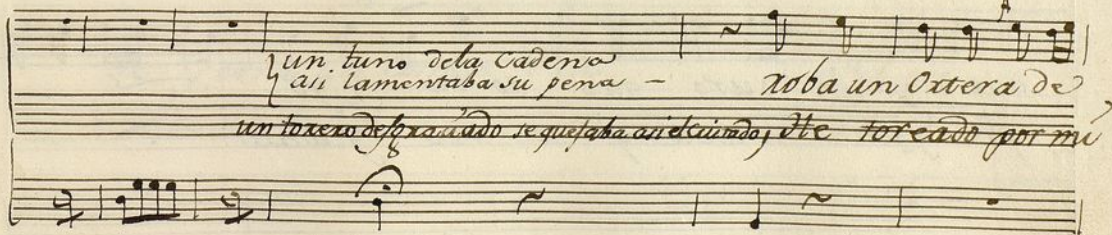 un tuno dela Cadena
asi lamentaba su pena - Roba un Ortera de
un torero desgraciado se quejaba asi el cuitado, He toreado por mi